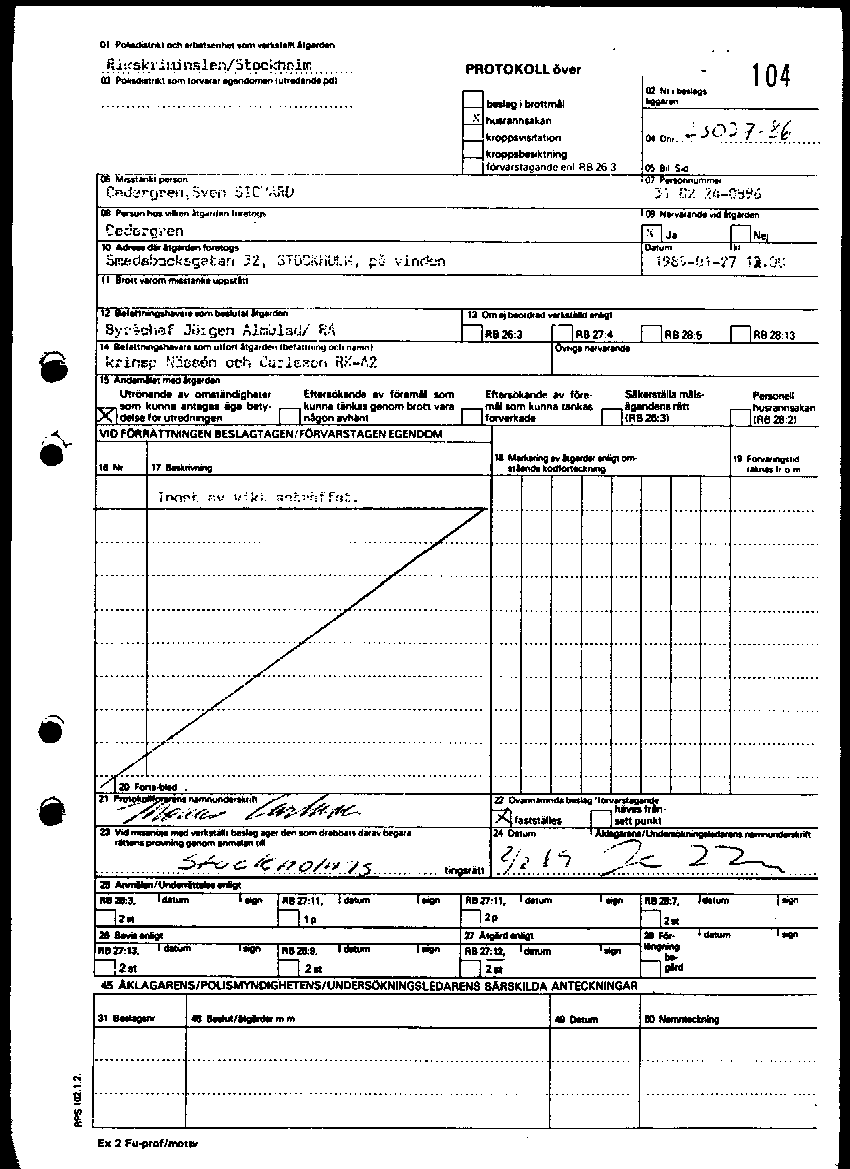 01 Polisdistrikt och arbetsenhet som verkställt åtgärden
Rikskriminalen/Stockholm
PROTOKOLL över
104
03 Polisdistrikt som förvarar egendomen (utredande pd)
02 Nr i beslags
liggaren
beslag i brottmål
X husrannsakan
kroppsvisitation
kroppsbesiktning
förvarstagande enl RB 26:3
04 Dnr
05 Bil Sid
06 Misstänkt person
07 Personnummer
Cedergren, Sven SIGVARD
08 Person hos vilken åtgärden företogs
09 Närvarande vid åtgärden
Cedergren
X Ja Nej
10 Adress där åtgärden företogs
Datum kl
Smedsbacksgatan 32, STOCKHOLM, på vinden
11 Brott varom misstanke uppstått
12 Befattningshavare som beslutat åtgärden
13 Om ej beordrad verkställd enligt
Byråchef Jörgen Almblad/ RÅ
RB 26:3 RB 27:4 RB 28:5 RB 28:13
14 Befattningshavare som utfört åtgärden (befattning och namn)
Övriga närvarande
krinsp Nässén och Carlsson RK-A2
15 Ändamålet med åtgärden
X Utrönande av omständigheter
som kunna antagas äga bety-
delse för utredningen
Eftersökande av föremål som
kunna tänkas genom brott vara
någon avhänt
Eftersökande av före-
mål som kunna tänkas
förverkade
Säkerställa måls-
ägandens rätt
(RB 26:3)
Personell
husrannsakan
(RB 28:2)
VID FÖRRÄTTNINGEN BESLAGTAGEN/FÖRVARSTAGEN EGENDOM
16 Nr
17 Beskrivning
18 Markering av åtgärder enligt om-
stående kodförteckning
19 Förvaringstid
räknas fr o m
Inget av vikt anträffat.
20 Forts-blad
21 Protokollförarens namnunderskrift
22 Ovannämnda beslag/förvarstagande
X fastställes
häves från-
sett punkt
23 Vid missnöje med verkställt beslag äger den som drabbats därav begära
rättens prövning genom anmälan till
Stockholms tingsrätt
24 Datum
Åklagarens/Undersökningsledarens namnunderskrift
2/2 89
25 Anmälan/Underrättelse enligt
RB 28:3, datum sign
2 st
RB 27:11, datum sign
1 p
RB 27:11, datum sign
2 p
RB 28:7, datum sign
2 st
26 Bevis enligt
27 Åtgärd enligt
28 För-
längning
be-
gärd
datum sign
RB 27:13, datum sign
2 st
RB 28:9, datum sign
2 st
RB 27:12, datum sign
2 st
45 ÅKLAGARENS/POLISMYNDIGHETENS/UNDERSÖKNINGSLEDARENS SÄRSKILDA ANTECKNINGAR
31 Beslagsnr
48 Beslut/åtgärder m m
49 Datum
50 Namnteckning
RPS 102.1.2.
Ex 2 Fu-prot/motsv